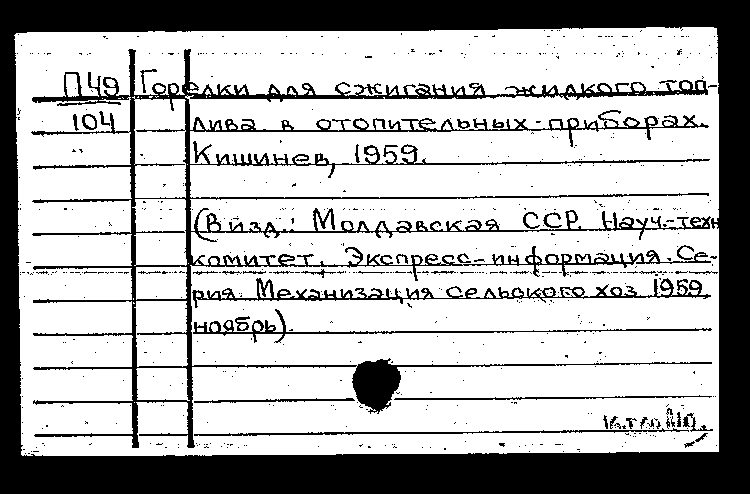 П49 Горелки для сжигания жидкого топ-
104 лива в отопительных приборах.
Кишинев, 1959.
(В изд.: Молдавская ССР. Науч.-техн
комитет. Экспресс-информация. Се-
рия. Механизация сельского хоз. 1959,
ноябрь).